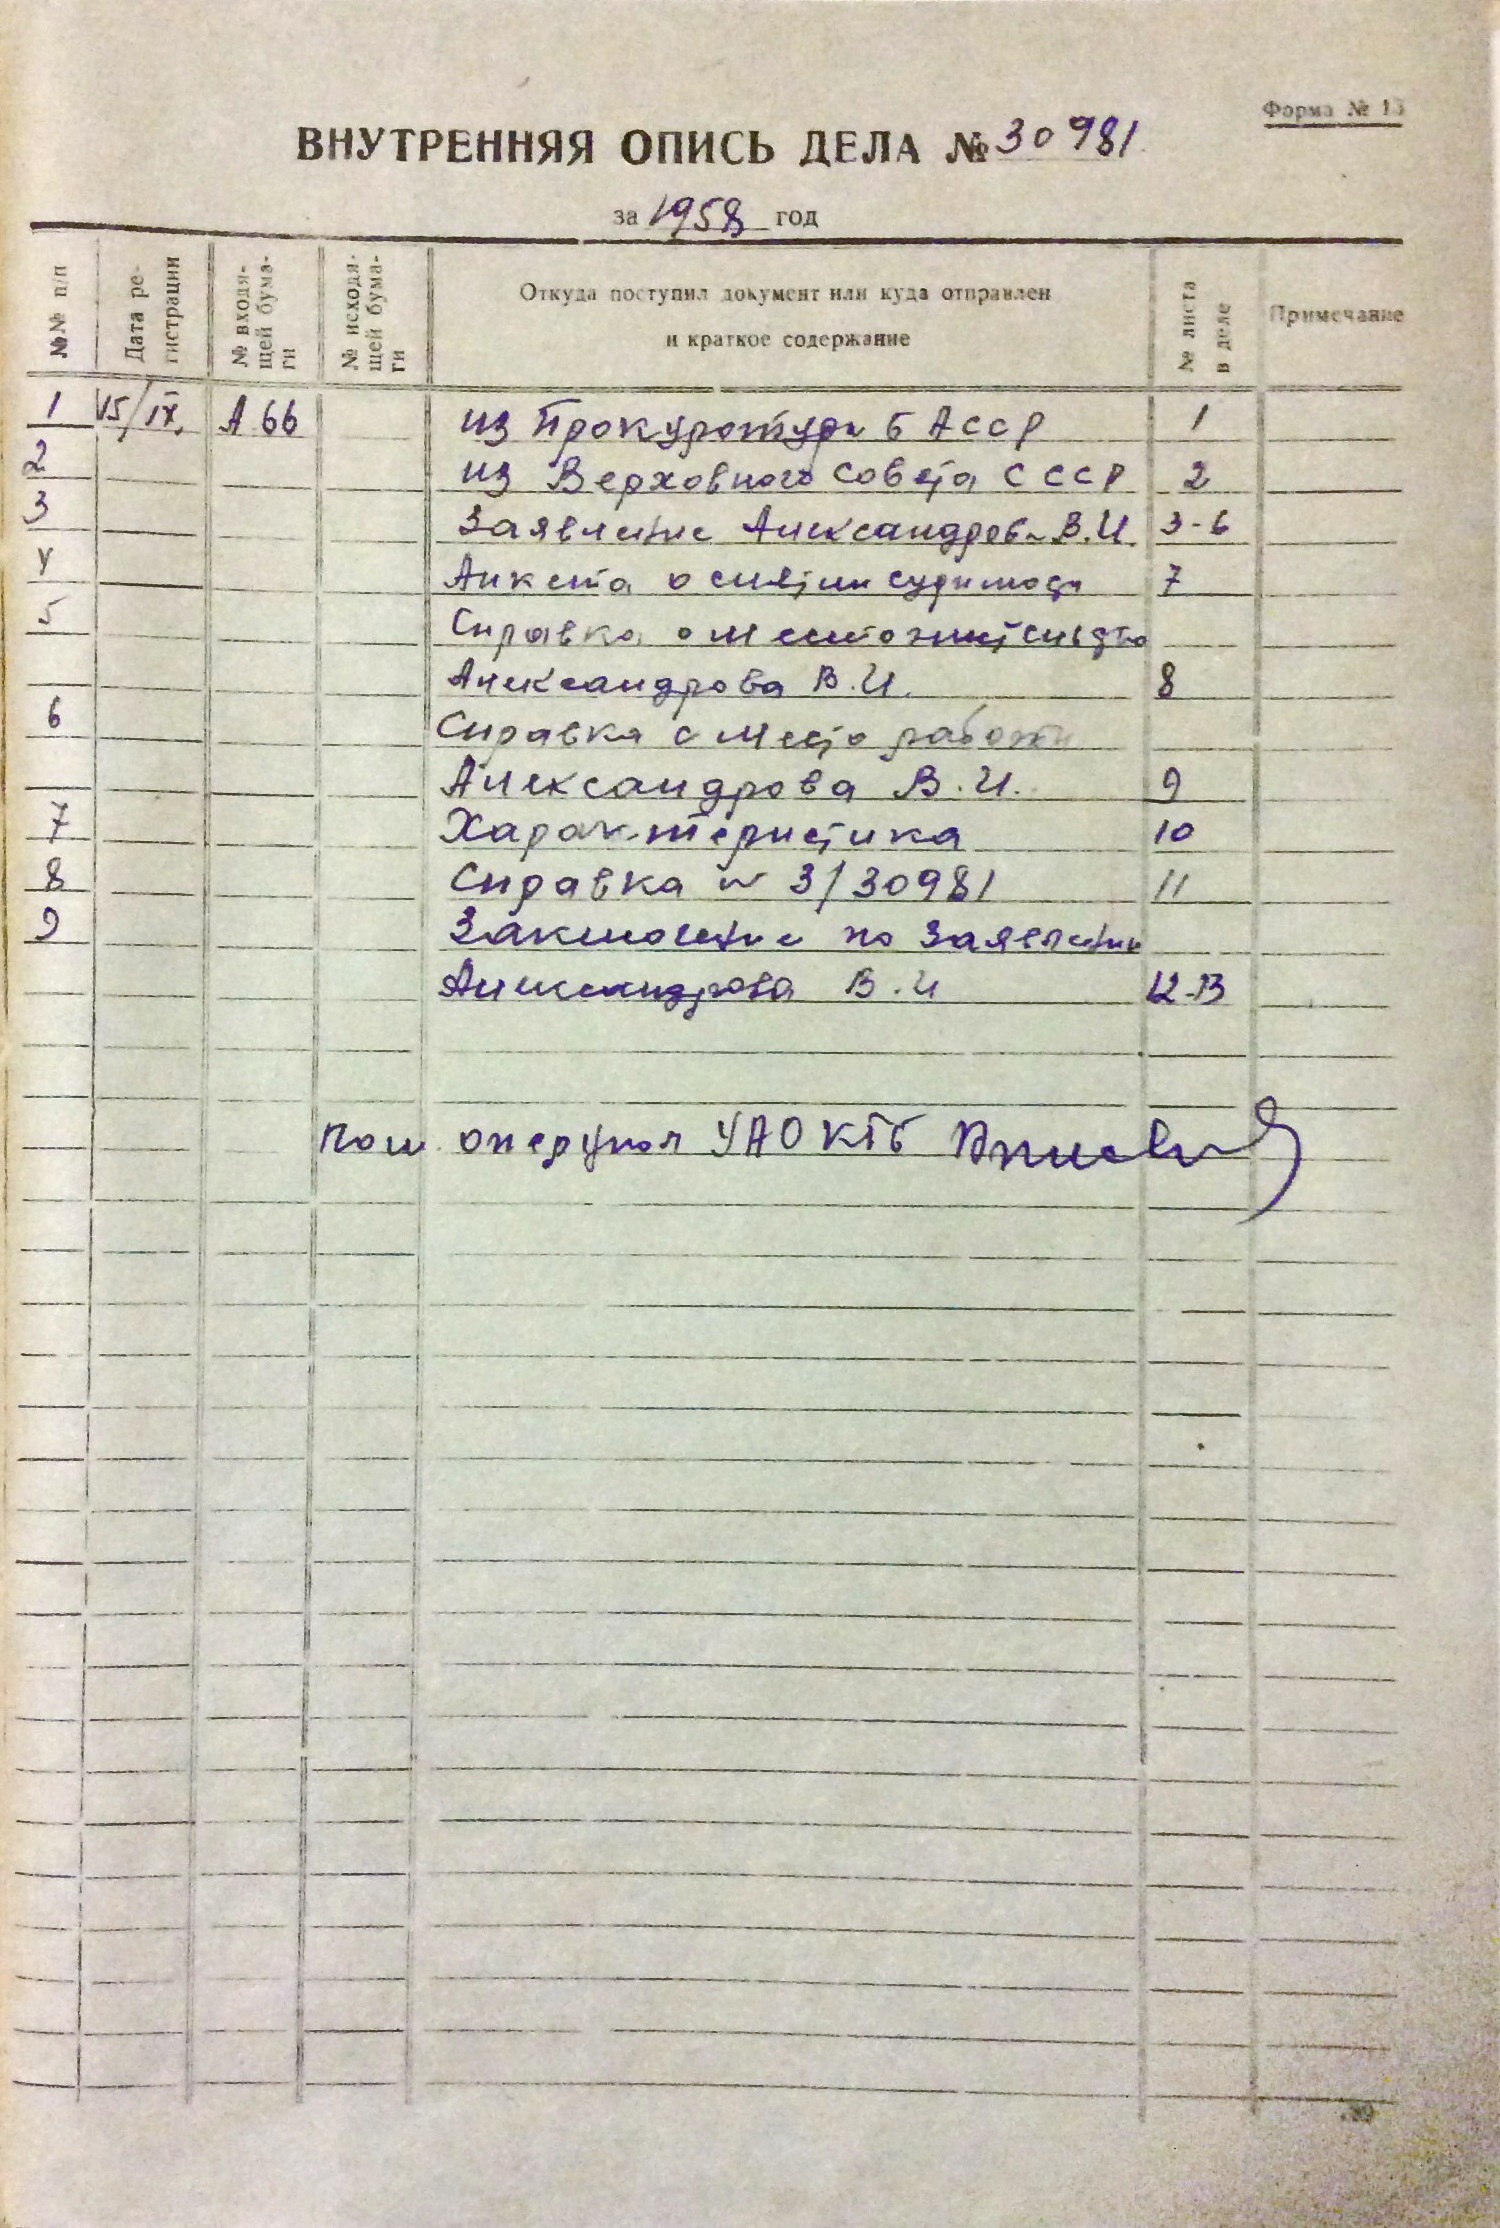 Форма № 13
ВНУТРЕННЯЯ ОПИСЬ ДЕЛА № 30981
за 1958 год
№№ п/п
Дата ре-
гистрации
№ входя-
щей бума-
ги
№ исходя-
щей бума-
ги
Откуда поступил документ или куда отправлен
и краткое содержание
№ листа
в деле
Примечание
1 15/IX. А 66 из Прокуратуры БАССР 1
2 из Верховного Совета СССР 2
3 Заявление Александрова В.И. 3-6
4 Анкета о снятии судимости 7
5 Справка о местожительства
Александрова В.И. 8
6 Справка с место работы
Александрова В.И. 9
7 Характеристика 10
8 Справка № 3/30981 11
9 Заключение по заявлению
Александрова В.И 12-13
пом. оперупол УАО КГБ